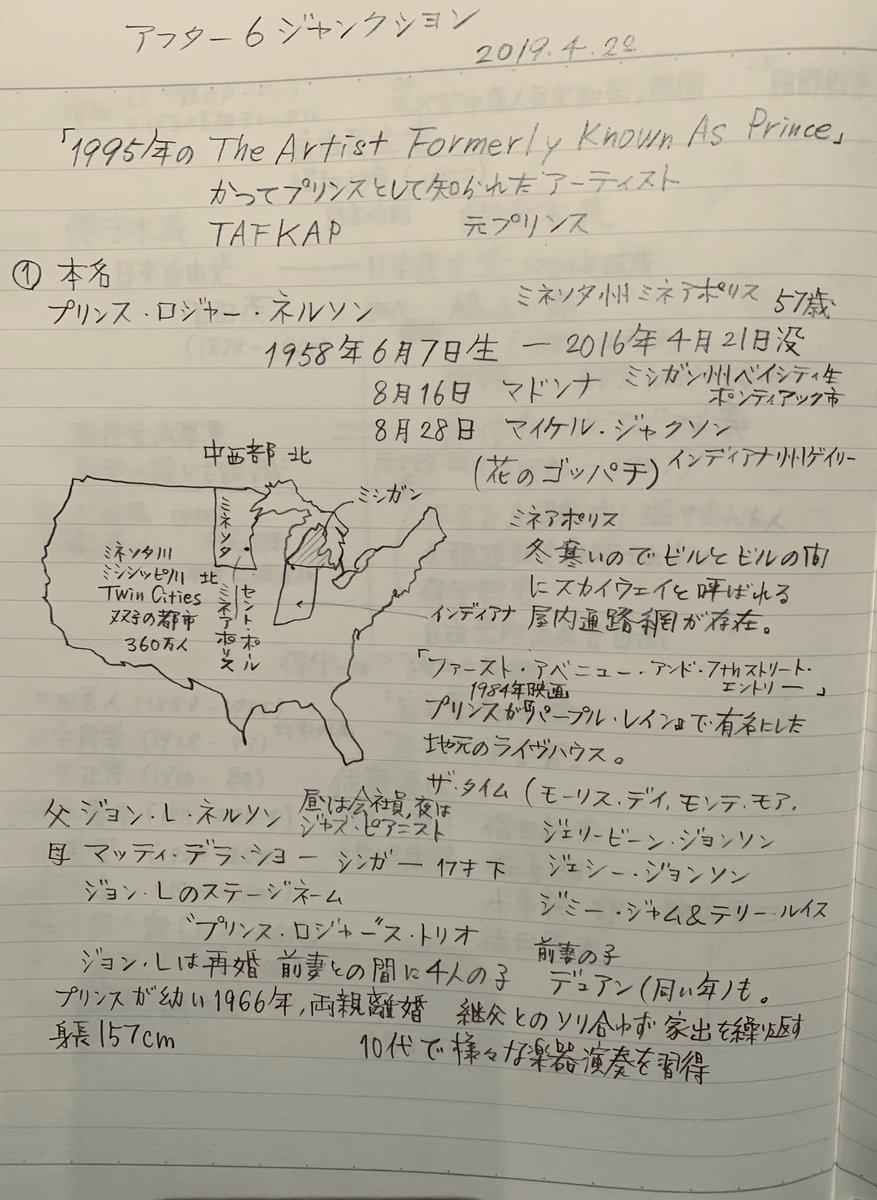 アフター6ジャンクション
2019.4.22
「1995年の The Artist Formerly Known As Prince」
かつてプリンスとして知られたアーティスト
TAFKAP 元プリンス
① 本名
プリンス・ロジャー・ネルソン
ミネソタ州ミネアポリス 57歳
1958年6月7日生 ー 2016年4月21日没
8月16日 マドンナ ミシガン州ベイシティ生
ポンティアック市
8月28日 マイケル・ジャクソン
(花のゴッパチ) インディアナ州ゲイリー
中西部 北
ミシガン
ミネソタ
ミネソタ川
ミシシッピ川 北
Twin Cities
双子の都市
360万人
セント・ポール
ミネアポリス
インディアナ
ミネアポリス
冬寒いのでビルとビルの間
にスカイウェイと呼ばれる
屋内通路網が存在。
「ファースト・アベニュー・アンド・7thストリート・
エントリー」
1984年映画
プリンスが『パープル・レイン』で有名にした
地元のライヴハウス。
ザ・タイム (モーリス・デイ、モンテ・モア、
ジェリービーン・ジョンソン
ジェシー・ジョンソン
ジミー・ジャム&テリー・ルイス
父 ジョン・L・ネルソン 昼は会社員、夜は
ジャズ・ピアニスト
母 マッティ・デラ・ショー シンガー 17才下
ジョン・Lのステージネーム
"プリンス・ロジャース・トリオ
ジョン・Lは再婚 前妻との間に4人の子
前妻の子
デュアン(同い年)も。
プリンスが幼い1966年、両親離婚 継父とのソリ合わず家出を繰り返す
身長157cm
10代で様々な楽器演奏を習得